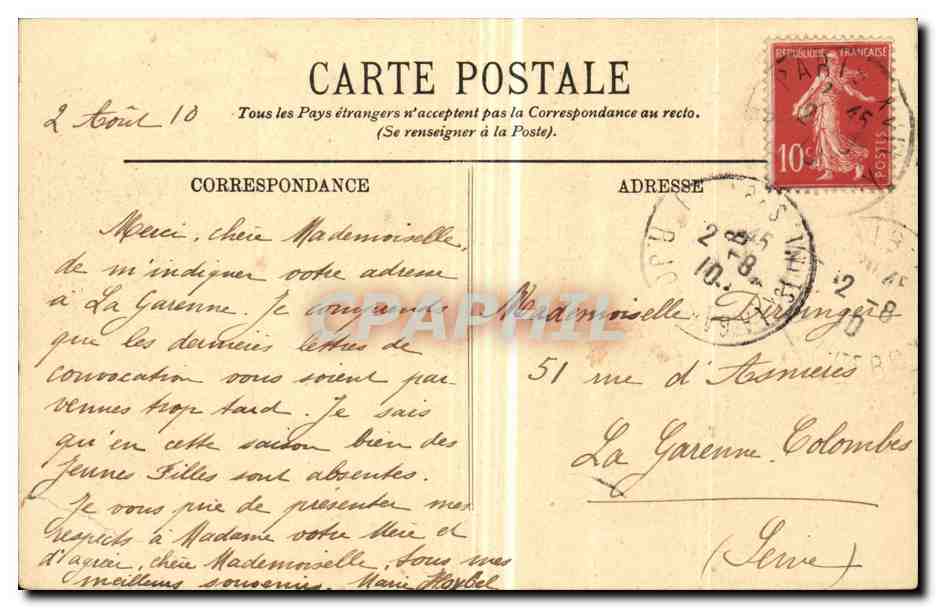 CARTE POSTALE
Tous les Pays étrangers n'acceptent pas la Correspondance au recto.
(Se renseigner à la Poste).
2 Août 10
CORRESPONDANCE
Merci, chère Mademoiselle,
de m'indiquer votre adresse
à La Garenne. Je comprends
que les dernières lettres de
convocation vous soient par
venues trop tard. Je sais
qu'en cette saison bien des
Jeunes Filles sont absentes.
Je vous prie de présenter mes
respects à Madame votre Mère et
d'agréer, chère Mademoiselle, tous mes
meilleurs souvenirs. Marie
ADRESSE
Mademoiselle
51 rue d'Asnières
La Garenne Colombes
(Seine)
REPUBLIQUE FRANÇAISE
10c
POSTES
PARIS
2 45
PARIS
2 45
8-8
10
2 -8
10
CPAPHIL